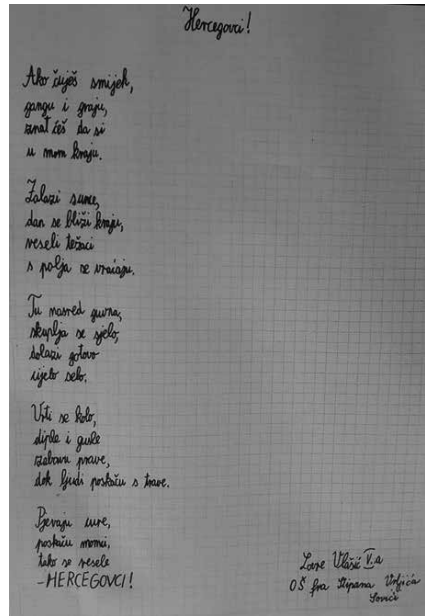 Hercegovci!
Ako čuješ smijeh,
gangu i graju,
znat ćeš da si
u mom kraju.
Zalazi sunce,
dan se bliži kraju,
veseli težaci
s polja se vraćaju.
Tu nasred guvna,
skuplja se sjelo,
dolazi gotovo
cijelo selo.
Vrti se kolo,
diple i gusle
zabavu prave,
dok ljudi poskaču s trave.
Pjevaju cure,
poskaču momci,
tako se vesele
-HERCEGOVCI!
Vlašić V.a
OŠ fra Stipana Vrljića
Sovići